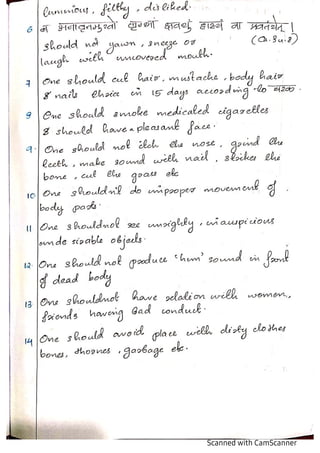 luminious, filthy, disliked.
6 न
(Ch.Su.8)
should not yawn, sneeze or
laugh with uncovered mouth.
7 One should cut hair, mustache, body hair
& nails thrice in 15 days according to चरक.
8 One should smoke medicated cigarettes
& should have a pleasant face.
9. One should not itch the nose, grind the
teeth, make sound with nail, strikes the
bone, cut the grass etc
10 One shouldn't do improper movement of
body parts.
11 One shouldnot see unsightly, inauspicious
undesirable objects.
12. One should not produce 'hum' sound in front
of dead body
13 One shouldnot have relation with women,
friends having bad conduct.
14 One should avoid place with dirty clothes
bones, thornes, garbage etc.
Scanned with CamScanner